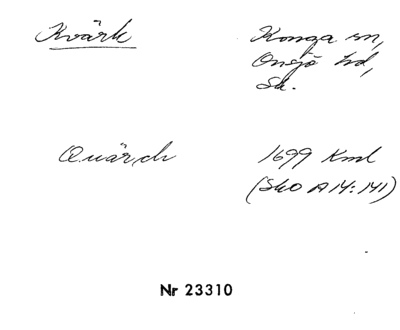 Kvärk
Konga sn,
Onsjö hd,
Sk.
Quärch
1699 Kml
(SkO A14:141)
Nr 23310